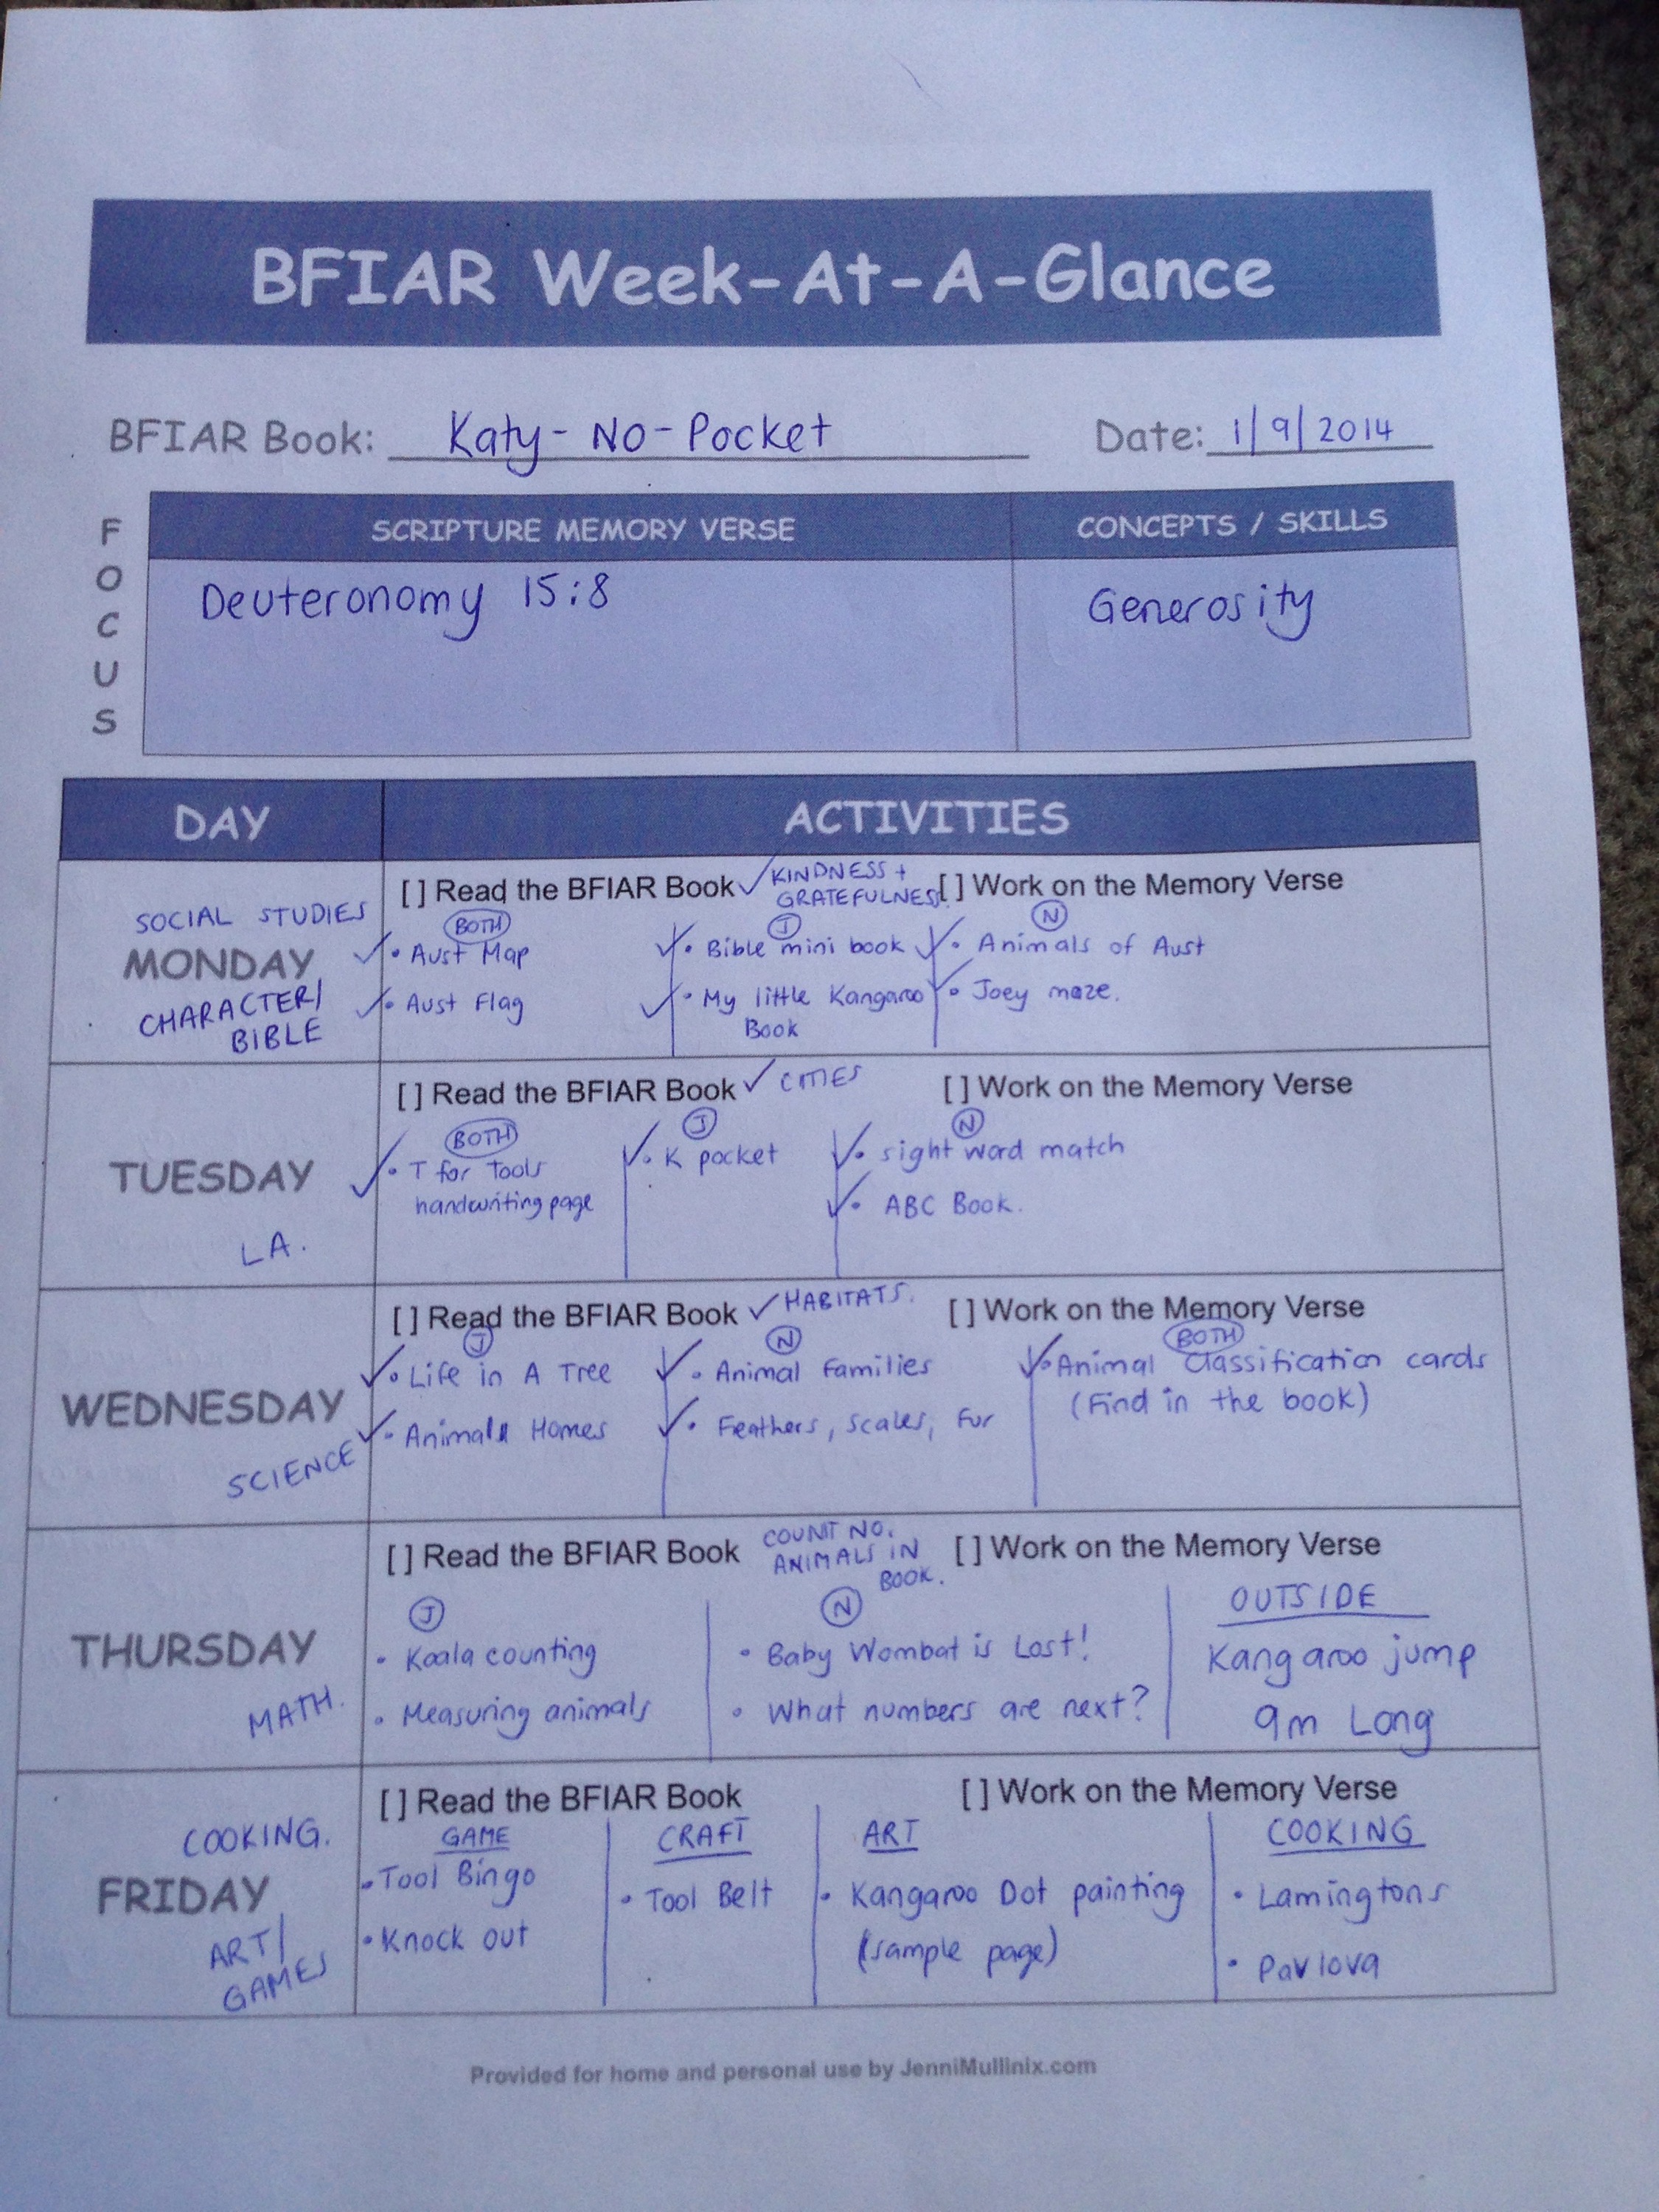 BFIAR Week-At-A-Glance
BFIAR Book: Katy-No-Pocket Date: 1/9/2014
FOCUS
SCRIPTURE MEMORY VERSE CONCEPTS / SKILLS
Deuteronomy 15:8 Generosity
DAY ACTIVITIES
SOCIAL STUDIES
MONDAY
CHARACTER/
BIBLE
[ ] Read the BFIAR Book ✓ KINDNESS +
GRATEFULNESS
[ ] Work on the Memory Verse
BOTH
✓ • Aust Map
✓ • Aust Flag
J
✓ • Bible mini book
✓ • My little Kangaroo
Book
N
✓ • Animals of Aust
✓ • Joey maze.
TUESDAY
LA.
[ ] Read the BFIAR Book ✓ CITIES
[ ] Work on the Memory Verse
BOTH
✓ • T for Tools
handwriting page
J
✓ • K pocket
N
✓ • sight word match
✓ • ABC Book.
WEDNESDAY
SCIENCE
[ ] Read the BFIAR Book ✓ HABITATS.
[ ] Work on the Memory Verse
J
✓ • Life in A Tree
✓ • Animal Homes
N
✓ • Animal Families
✓ • Feathers, scales, fur
BOTH
✓ • Animal classification cards
(Find in the book)
THURSDAY
MATH.
[ ] Read the BFIAR Book COUNT NO.
ANIMALS IN
BOOK.
[ ] Work on the Memory Verse
J
• Koala counting
• Measuring animals
N
• Baby Wombat is Lost!
• What numbers are next?
OUTSIDE
Kangaroo jump
9m Long
COOKING.
FRIDAY
ART/
GAMES
[ ] Read the BFIAR Book
[ ] Work on the Memory Verse
GAME
• Tool Bingo
• Knock out
CRAFT
• Tool Belt
ART
• Kangaroo Dot painting
(sample page)
COOKING
• Lamingtons
• Pavlova
Provided for home and personal use by JenniMullinix.com